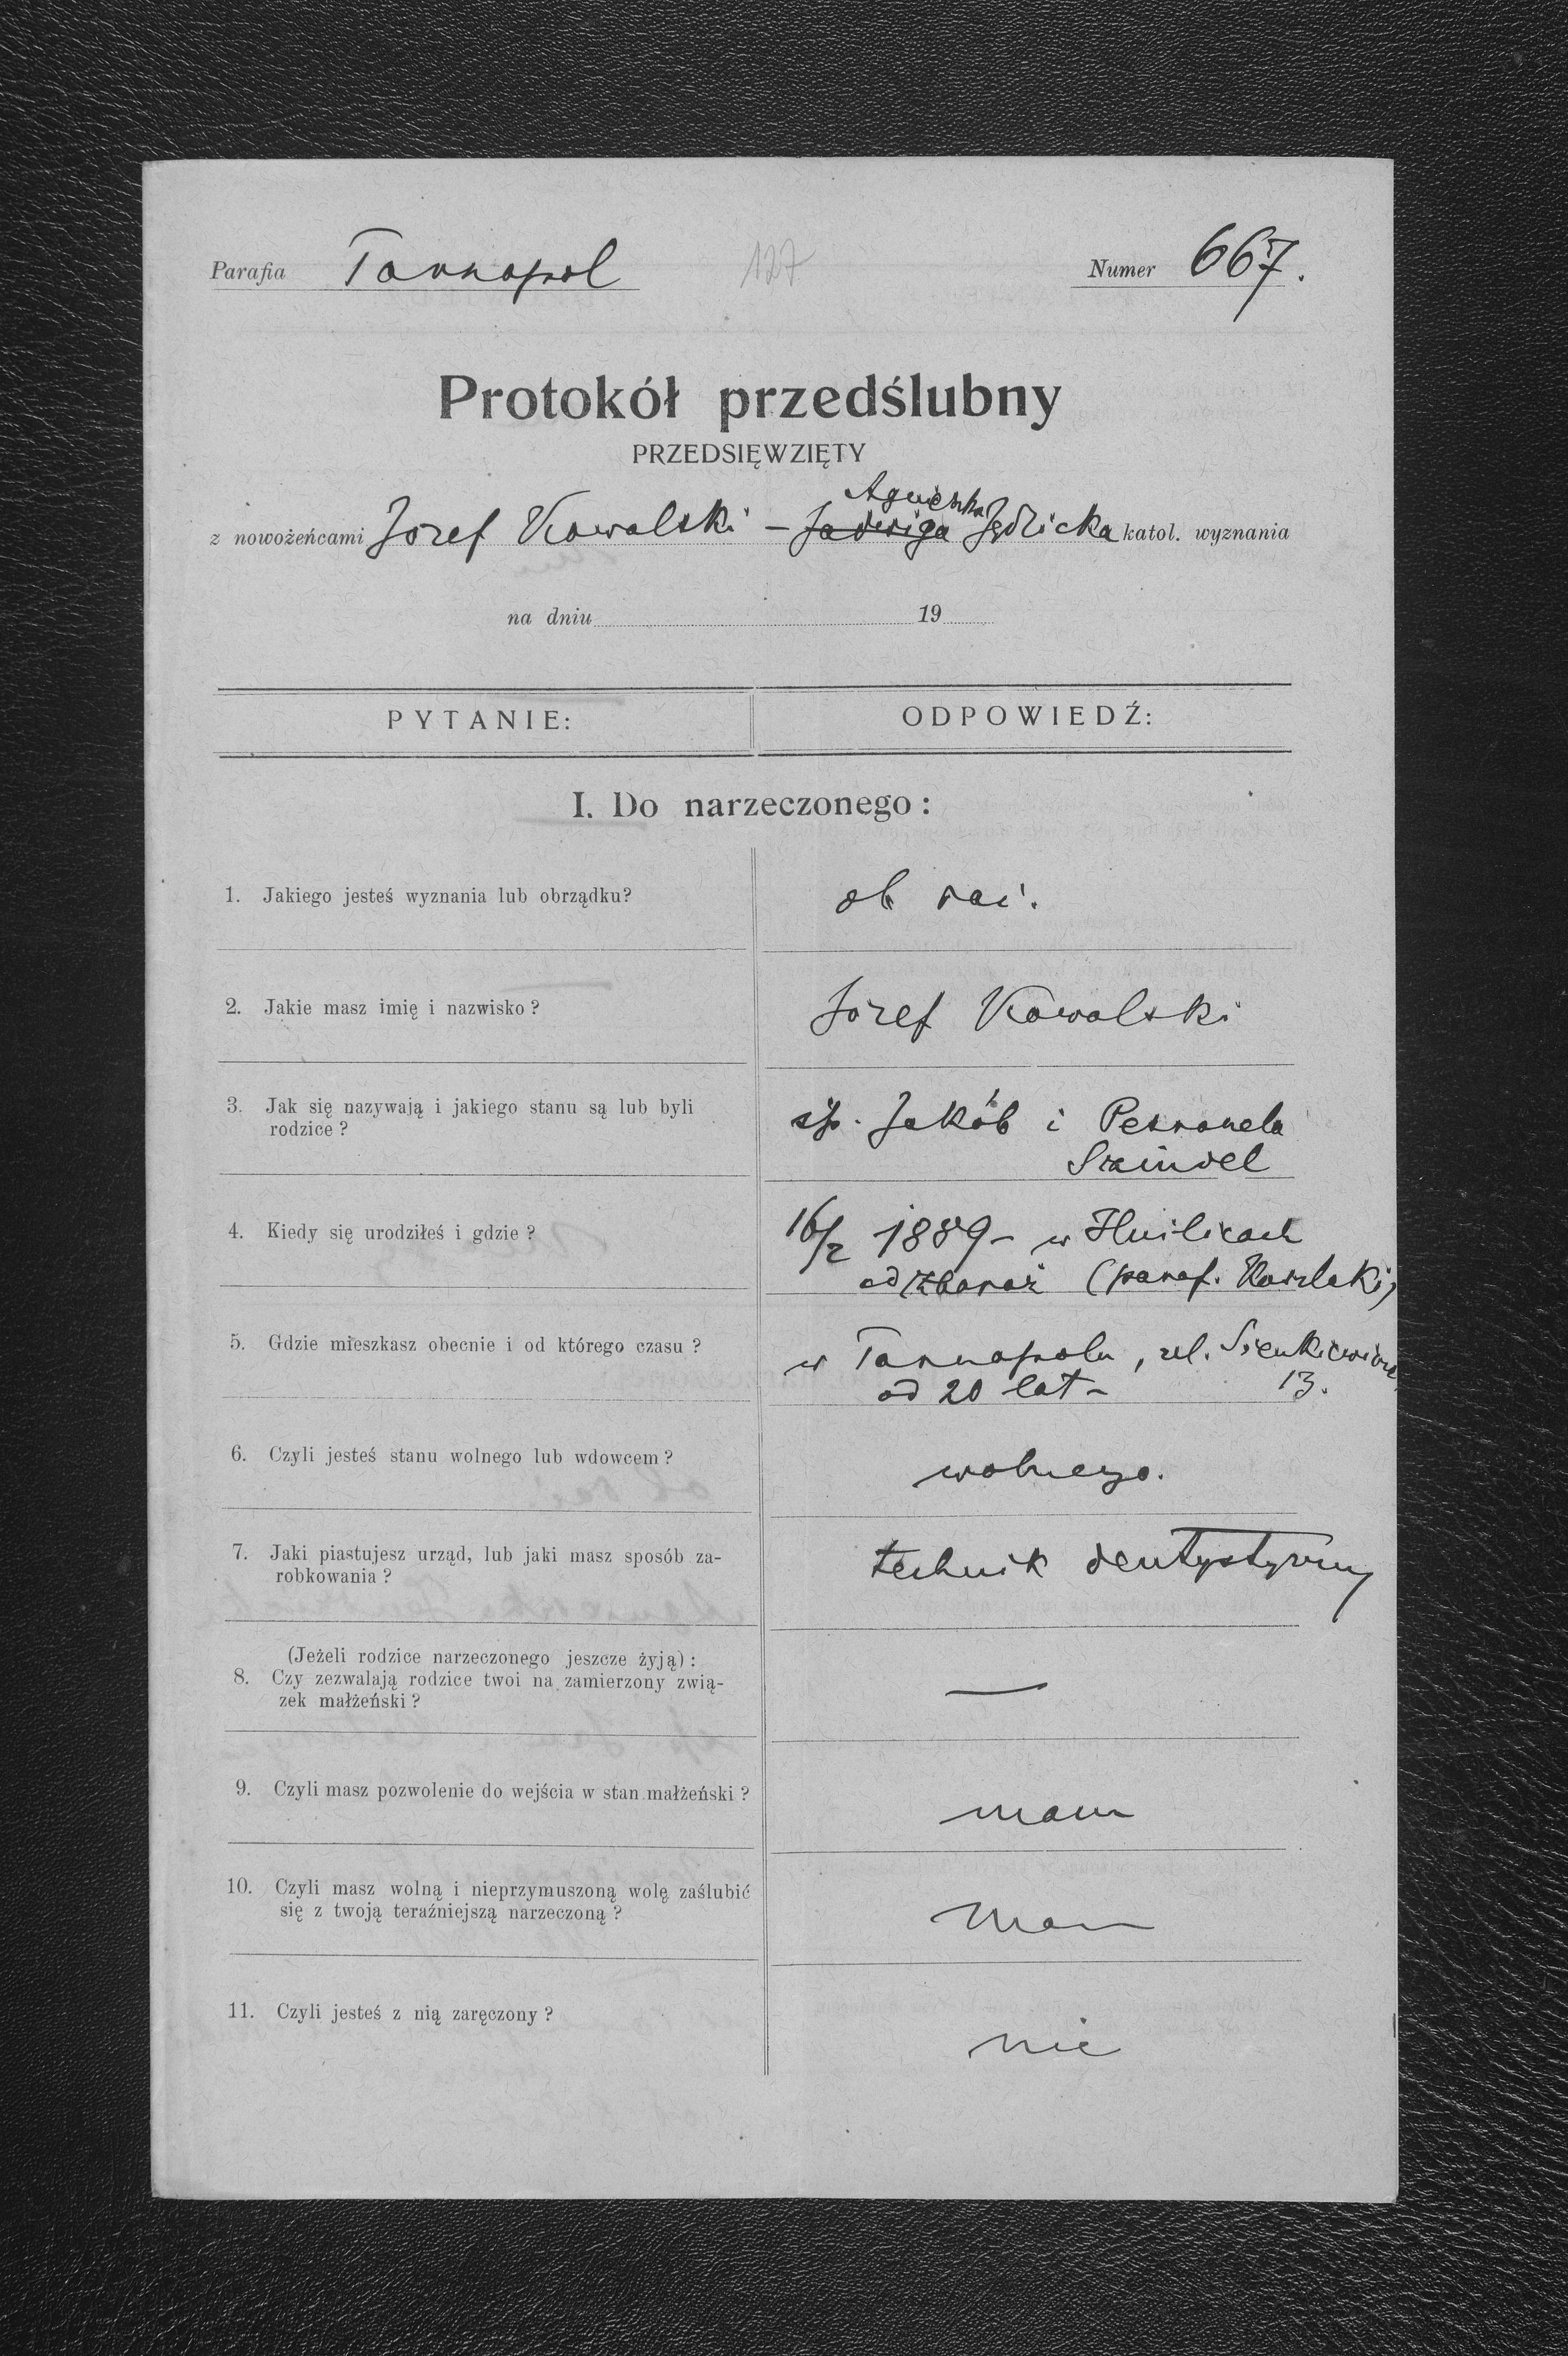 Parafia Tarnopol 127 Numer 667.
Protokół przedślubny
PRZEDSIĘWZIĘTY
Agnieszka
z nowożeńcami Józef Kowalski – Jadwiga Jędlicka katol. wyznania
na dniu 19
PYTANIE: ODPOWIEDŹ:
I. Do narzeczonego:
1. Jakiego jesteś wyznania lub obrządku? ob łać.
2. Jakie masz imię i nazwisko? Józef Kowalski
3. Jak się nazywają i jakiego stanu są lub byli
rodzice? śp. Jakób i Petronela
4. Kiedy się urodziłeś i gdzie? 16/2 1889 – w Hnilicach
ad Zbaraż (paraf. Koszlaki)
5. Gdzie mieszkasz obecnie i od którego czasu? w Tarnopolu, ul. Sienkiewicza
od 20 lat – 13.
6. Czyli jesteś stanu wolnego lub wdowcem? wolnego.
7. Jaki piastujesz urząd, lub jaki masz sposób za-
robkowania? technik dentystyczny
(Jeżeli rodzice narzeczonego jeszcze żyją):
8. Czy zezwalają rodzice twoi na zamierzony zwią-
zek małżeński? —
9. Czyli masz pozwolenie do wejścia w stan małżeński? mam
10. Czyli masz wolną i nieprzymuszoną wolę zaślubić
się z twoją teraźniejszą narzeczoną? mam
11. Czyli jesteś z nią zaręczony? nie